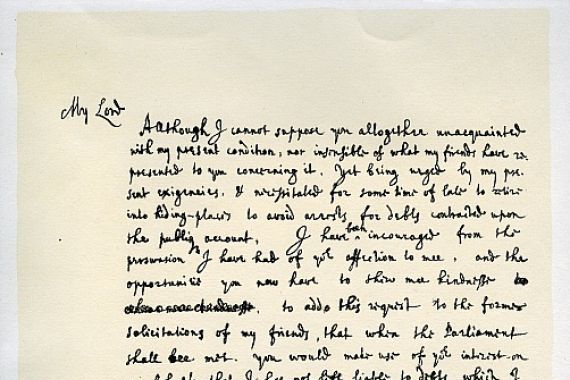 My Lord
Although I cannot suppose you altogether unacquainted
with my present condition, nor insensible of what my friends have re-
presented to you concerning it. Yet being urged by my pre-
sent exigencies, & necessitated for some time of late to retire
into hiding-places to avoid arrests for debts contracted upon
the publiq account, I have been incouraged from the
perswasion I have had of yor affection to mee, and the
opportunitie you now have to shew mee kindnesse to
to adde this request to the former
solicitations of my friends, that when the Parliament
shall bee met, you would make use of yor interest on
this I be not left liable to debts which I